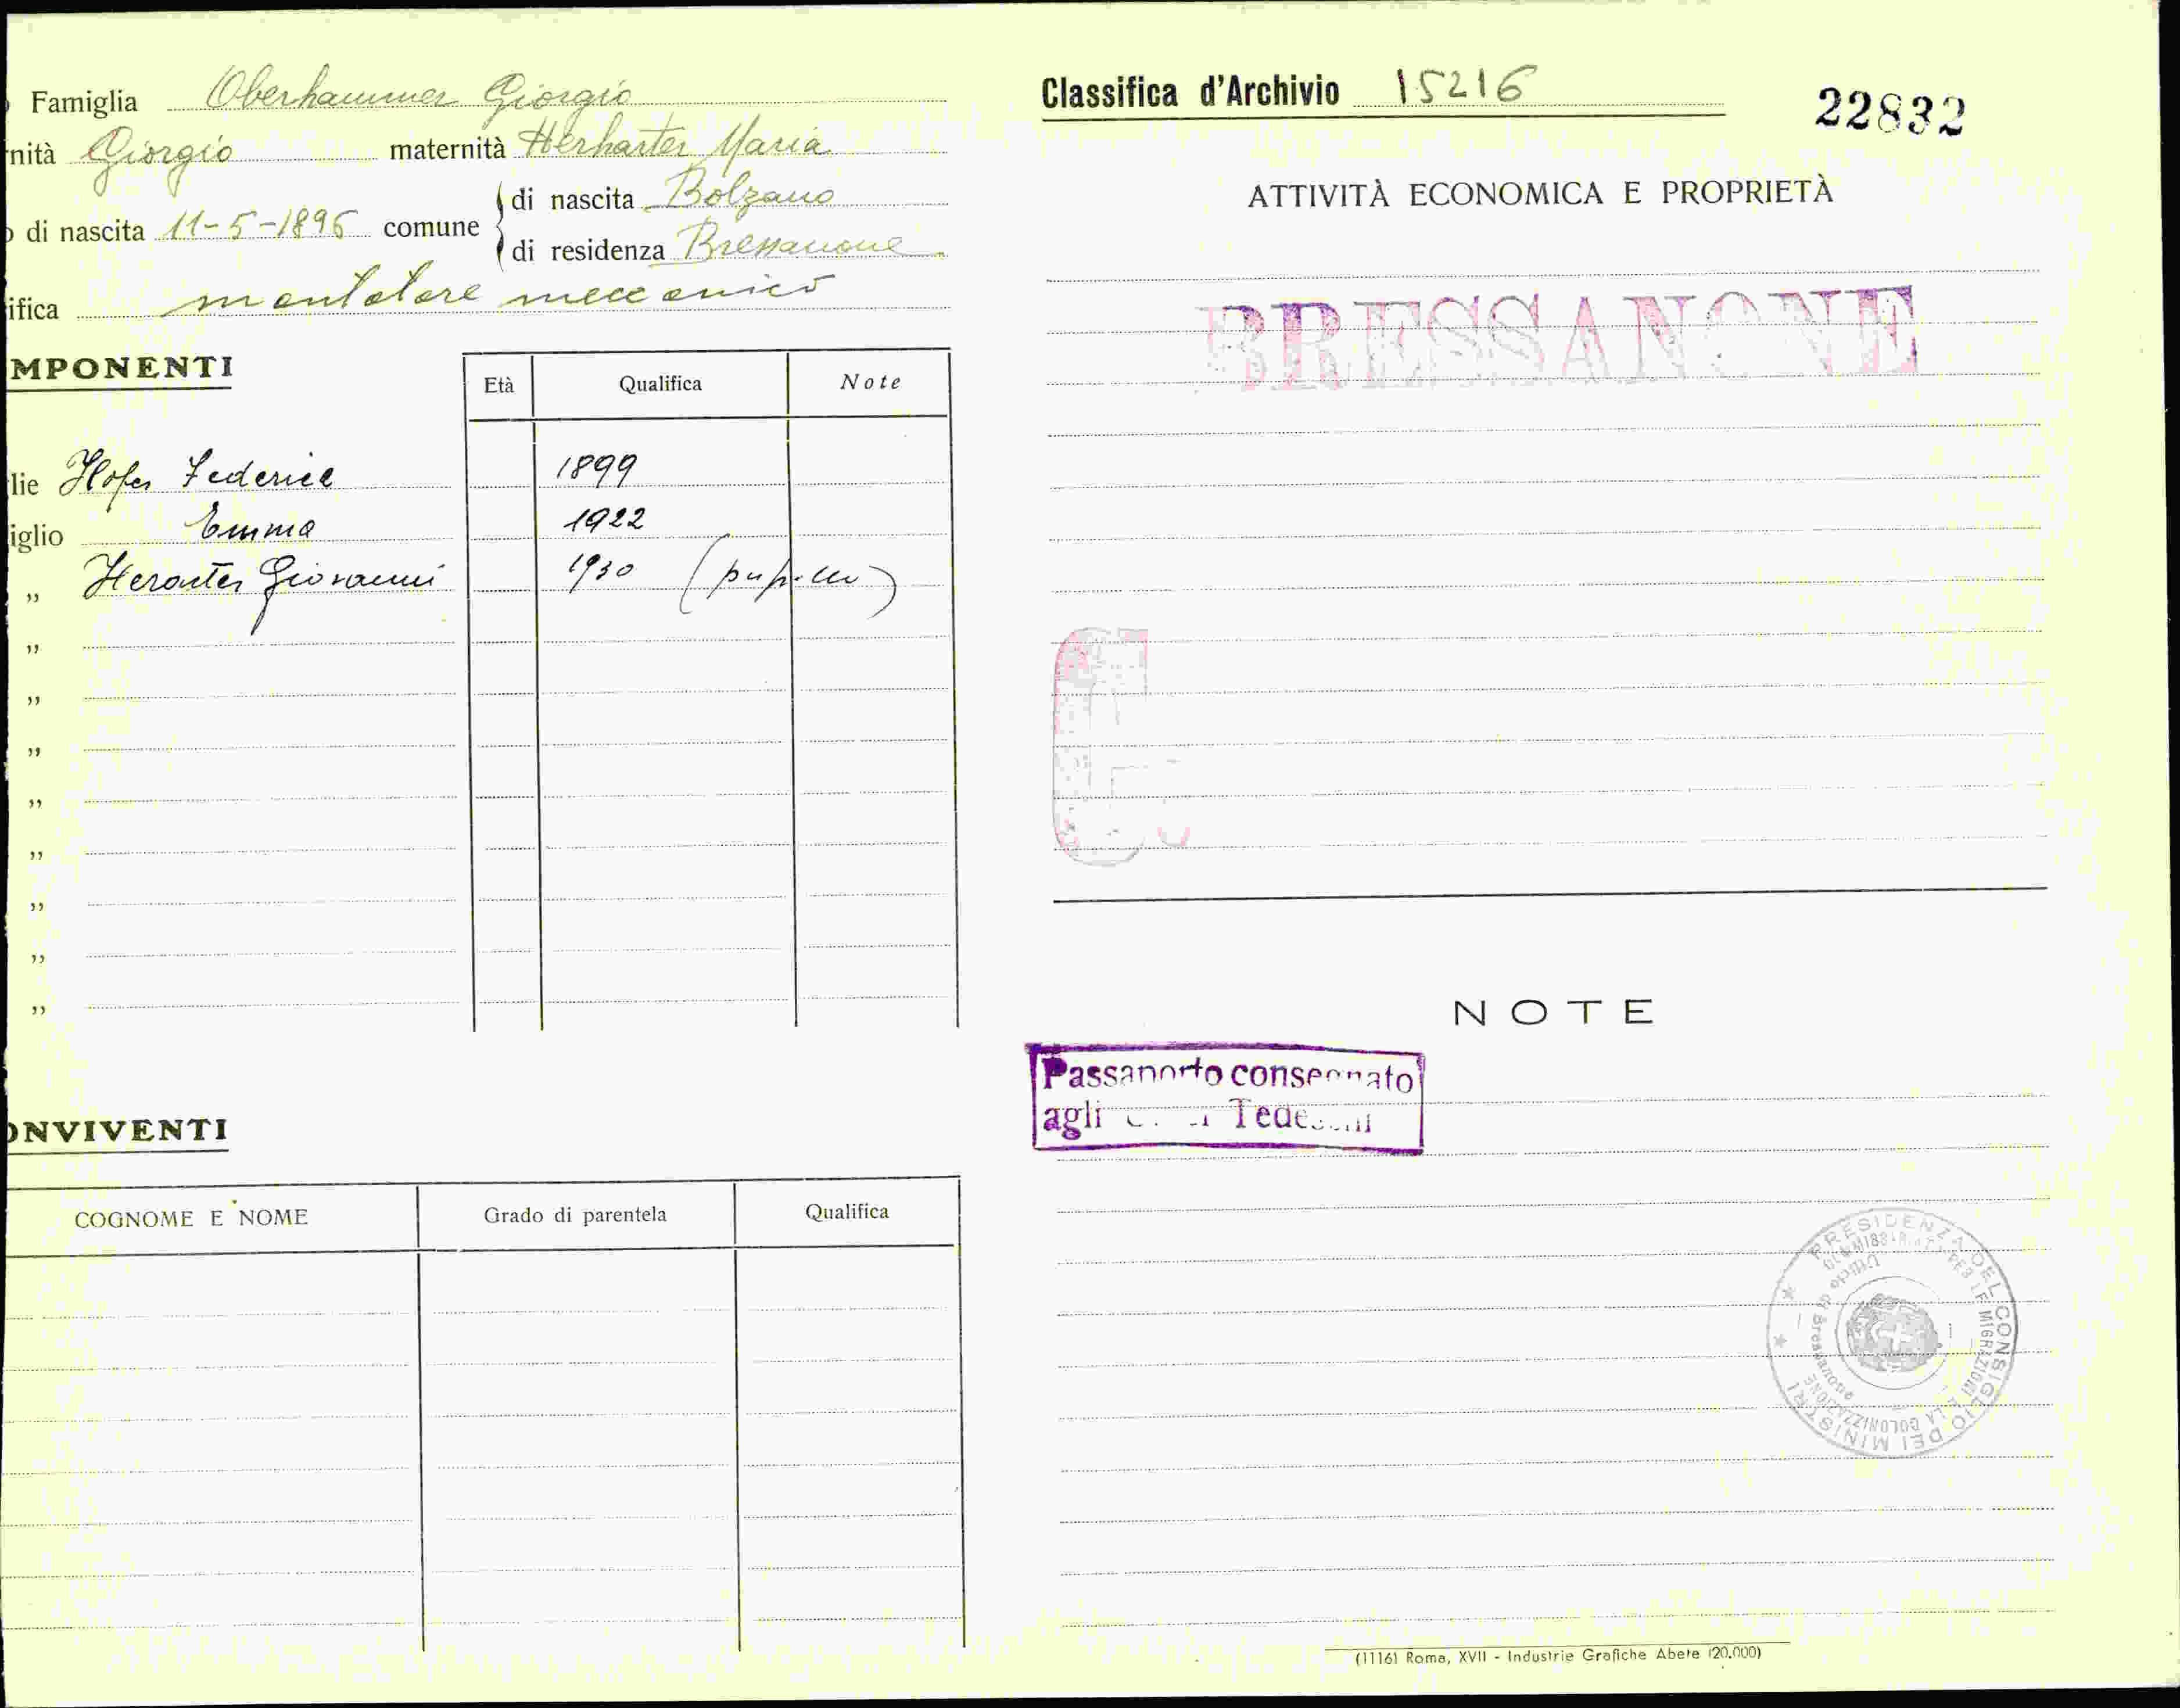 Famiglia Oberhammer Giorgio
nità Giorgio maternità Herharter Maria
di nascita 11-5-1896 comune di nascita Bolzano
di residenza Bressanone
ifica montatore meccanico
MPONENTI
Età Qualifica Note
lie Hofer Federica 1899
iglio Emma 1922
„ Herarter Giovanni 1930 (pupillo)
„
„
„
„
„
„
„
„
ONVIVENTI
COGNOME E NOME Grado di parentela Qualifica
Classifica d'Archivio 15216
22832
ATTIVITÀ ECONOMICA E PROPRIETÀ
BRESSANONE
NOTE
Passaporto consegnato
agli Tedeschi
PRESIDENZA DEL CONSIGLIO DEI MINISTRI
COMMISSARIATO PER LE MIGRAZIONI E LA COLONIZZAZIONE
Ufficio di Bressanone
(1116) Roma, XVII - Industrie Grafiche Abete (20.000)